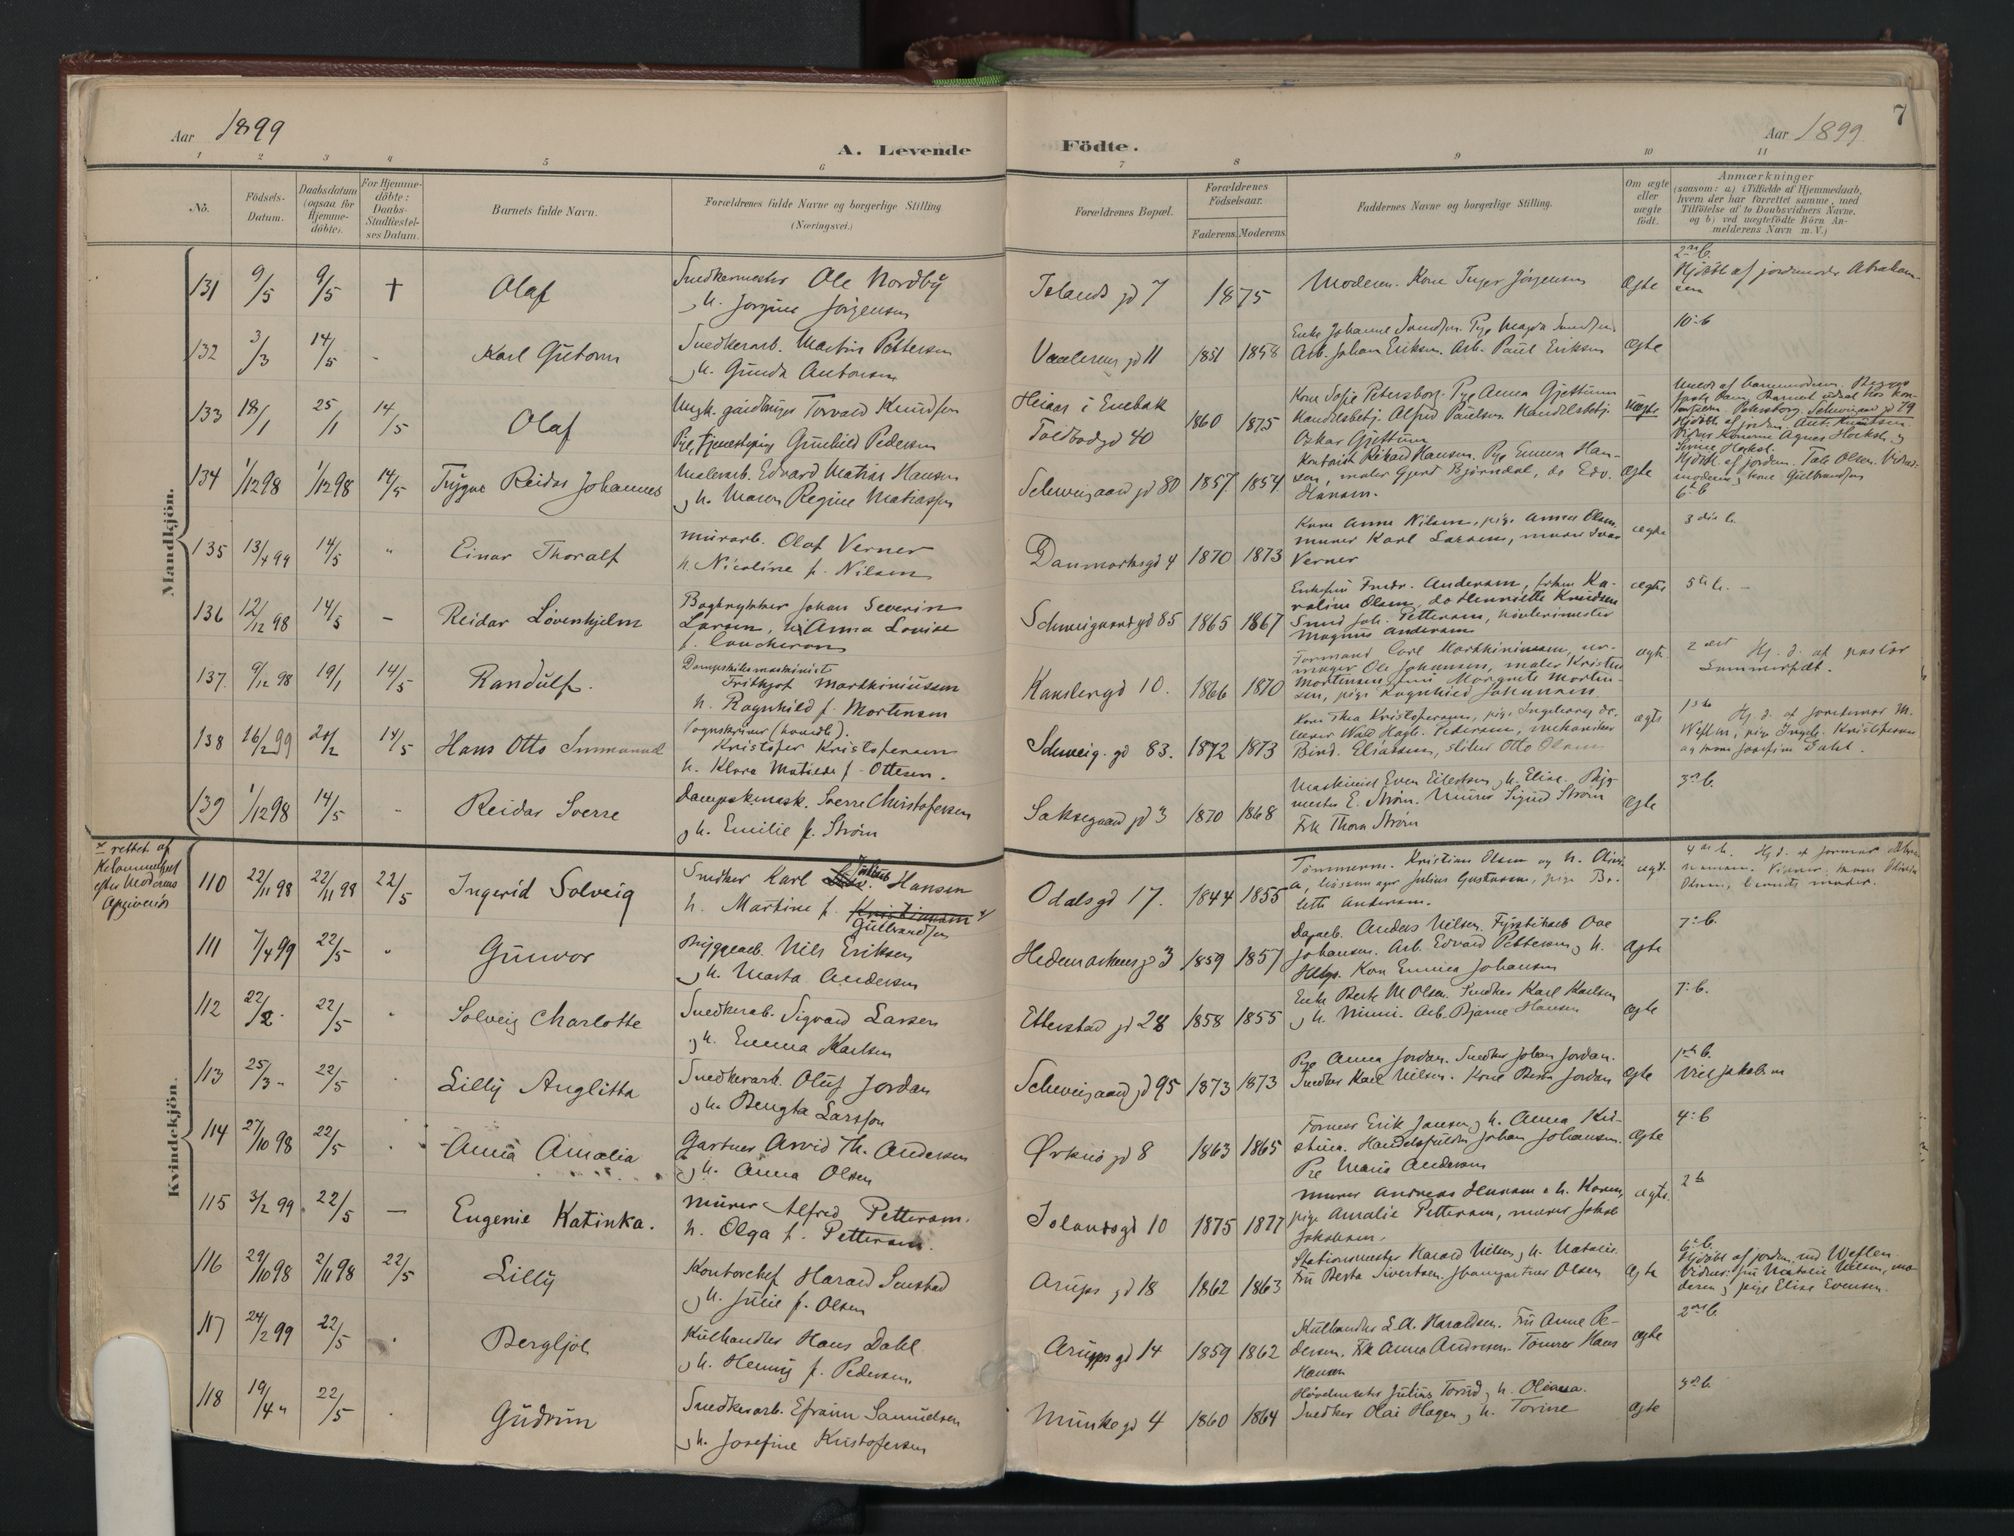 Aar 1899
A. Levende Födte.
Aar 1899
7
1 2 3 4 5 6 7 8 9 10 11
No.
Födsels-Datum.
Daabsdatum (ogsaa for Hjemmedöbte).
For Hjemmedöbte: Daabs-Stadfæstelses Datum.
Barnets fulde Navn.
Forældrenes fulde Navne og borgerlige Stilling
(Næringsvei.)
Forældrenes Bopæl.
Forældrenes Födselsaar.
Faderens. Moderens.
Faddernes Navne og borgerlige Stilling.
Om ægte eller uægte födt.
Anmærkninger
(saasom: a) i Tilfælde af Hjemmedaab, hvem der har forrettet samme, med Tilföielse af to Daabsvidners Navne, og b) ved uægtefödte Börn Anmelderens Navn m. V.)
Mandkjön.
131 9/5 9/5 † Olaf
Snedkermester Ole Nordby
og h. Jorgine Jörgensen
Islands gd 7 1875
Moderen. Kone Inger Jörgensen
Ægte
Hjdöbt af jordemoder Abrahamsen
132 3/3 14/5 - Karl Gutorm
Snedkerarb. Martin Pettersen
og h. Gunda Antonsen
Vaalerens gd 11 1851 1858
Enke Johanne Svendsen. Pige Magda Svendsen
Arb. Johan Eriksen. Arb. Paul Eriksen
Ægte
10-b
133 18/1 25/1 14/5 Olaf
Ungk. gaardbruger Torvald Knudsen
Pige, Gunhild Pedersen
Heiaas i Enebak
Toldbodgd 40
1860 1875
Kone Sofie Petersborg. Pige Anna Gjettum
Handelsbetj. Alfred Paulsen Handelsbetj.
Oskar Gjettum
Uægte
Schweigaard gd 79
134 1/12 98 1/12 98 14/5 Trygve Reidar Johannes
Malerarb. Edvard Matias Hansen
og h. Maren Regine Matiassen
Schweigaard gd 80 1857 1854
Kontorist Rikard Hansen. Pige Emma Hansen, maler Gjerd Bjørndal, do Edv. Hansen.
Ægte
Hjdöbt. af jordem. Tale Olsen. Vidner: moderen og kone Gulbrandsen
6-b
135 13/4 99 14/5 " Einar Thoralf
Murarb. Olaf Verner
h. Nicoline f. Nilsen
Danmarksgd 4 1870 1873
Kone Anna Nilsen, pige Anna Olsen,
murer Karl Larsen, murer Ivar
Verner
ægte
3 die b.
136 12/12 98 14/5 - Reidar Lövenhjelm
Bogtrykker Johan Severin
Larsen, h. Anna Lovise
Schweigaardgd 85 1865 1867
Enkefru Fredr. Andersen, frken Karoline Olsen, do Henriette Knudsen
Smed Joh. Pettersen,
Magnus Andersen
ægte
5te b. -
137. 9/12 98 19/1 14/5 Randulf.
Dampskibsmaskinist
Fritkjof Marthiniussen
h. Ragnhild f. Mortensen
Kanslergd 10. 1866 1870
Formand Carl Marthiniussen, urmager Ole Johansen, maler Kristen
Mortensen, fru Margrete Mortensen, pige Ragnhild Johannesen.
ægte
Hj. d. af pastor
138 16/2 99 20/2 14/5 Hans Otto Immanuel
Kristofer Kristofersen
h. Klara Matilde f. Ottesen.
Schweig. gd 83. 1872 1873
Elsassen, sliber Otto Olsen
ægte
Hj. d. af jordemor M.
139 1/12 98 14/5 - Reidar Sverre
Dampskmask. Sverre Christofersen
og h. Emilie f. Ström
Saksegaard gd 3 1870 1868
Maskinist Even Eilertsen og h. Elise. Bygmester E. Ström. Murer Sigurd Ström
Frk Thora Ström
Ægte
3-b.
Kvindekjön.
rettet af
efter Moderens
Opgivende
110 22/11 98 22/11 98 22/5 Ingerid Solveig
Snedker Karl Julius Hansen
h. Martine f. Kristiansen
Gulbrandsen
Odalsgd 17. 1844 1855
Tømmerm. Kristian Olsen og h. Olivia, Julius Gustavsen, pige Bolette Andersen.
ægte
111 7/4 99 22/5 " Gunvor
Bryggearb. Nils Eriksen
og h. Marta Andersen
Hedemarkens gd 3 1859 1857
Dagarb. Anders Nilsen. Fyrstikarb Ove
Johansen. Arb. Edvard Pettersen og h.
Helga. Kone Emma Johansen
Ægte
7-b.
112 22/2 22/5 Solveig Charlotte
Snedkerab. Sigvard Larsen
og h. Emma Karlsen
Etterstad gd 28 1858 1855
Enke Berte M Olsen. Snedker Karl Karlsen
og h. Mimi. Arb. Bjarne Hansen
Ægte
7-b.
113 25/3 22/5 Lilly Anglitta
Snedkerarb. Oluf Jordan
og h. Bengta Larsson
Schweigaard gd 95 1873 1873
Pige Anna Jordan. Snedker Johan Jordan.
Snedker Karl Nilsen. Kone Berta Jordan
Ægte
1ste b.
114 27/10 98 22/5 Anna Amalia
Gartner Arvid Th. Andersen
og h. Anna Olsen
Örknö gd 8 1863 1865
Former Erik Jansen og h. Anna Kristina. Handelsfuldm Johan Johansen.
Pige Maria Andersen
Ægte
4-b
115 3/2 99 22/5 - Eugenie Katinka.
Murer Alfred Pettersen.
h. Olga f. Pettersen.
Islandsgd 10 1875 1877
Murer Andreas Hansen o h. Karen,
pige Amalie Pettersen, murer Jakob
Jakobsen.
ægte
2 b
116 29/10 98 2/11 98 22/5 Lilly
Kontorchef Harald Senstad
og h. Julie f. Olsen
Arups gd 18 1862 1863
Stationsmester Harald Nilsen og h. Natalie.
Fru Berta Sivertsen. Olsen
Ægte
6-b.
Hjdöbt af jordem. Weflen.
Vidner: fru Natalie Nilsen, moderen og pige Elise Evensen.
117 24/2 99 22/5 Bergljot
Kulhandler Hans Dahl
og h. Henny f. Pedersen
Arups gd 14 1859 1862
Kulhandler L.A. Haraldsen. Fru Anne Pedersen. Frk Anna Andresen. Tömrer Hans
Hansen
Ægte
2-b.
118 19/4 " 22/5 Gudrun
Snedkerarb. Efraim Samuelsen
og h. Josefine Kristofersen
Munke gd 4 1860 1864
Hövelmester Julius Torud og h. Oleana.
Snedker Olai Hagen og h. Torine
Ægte
3-b.